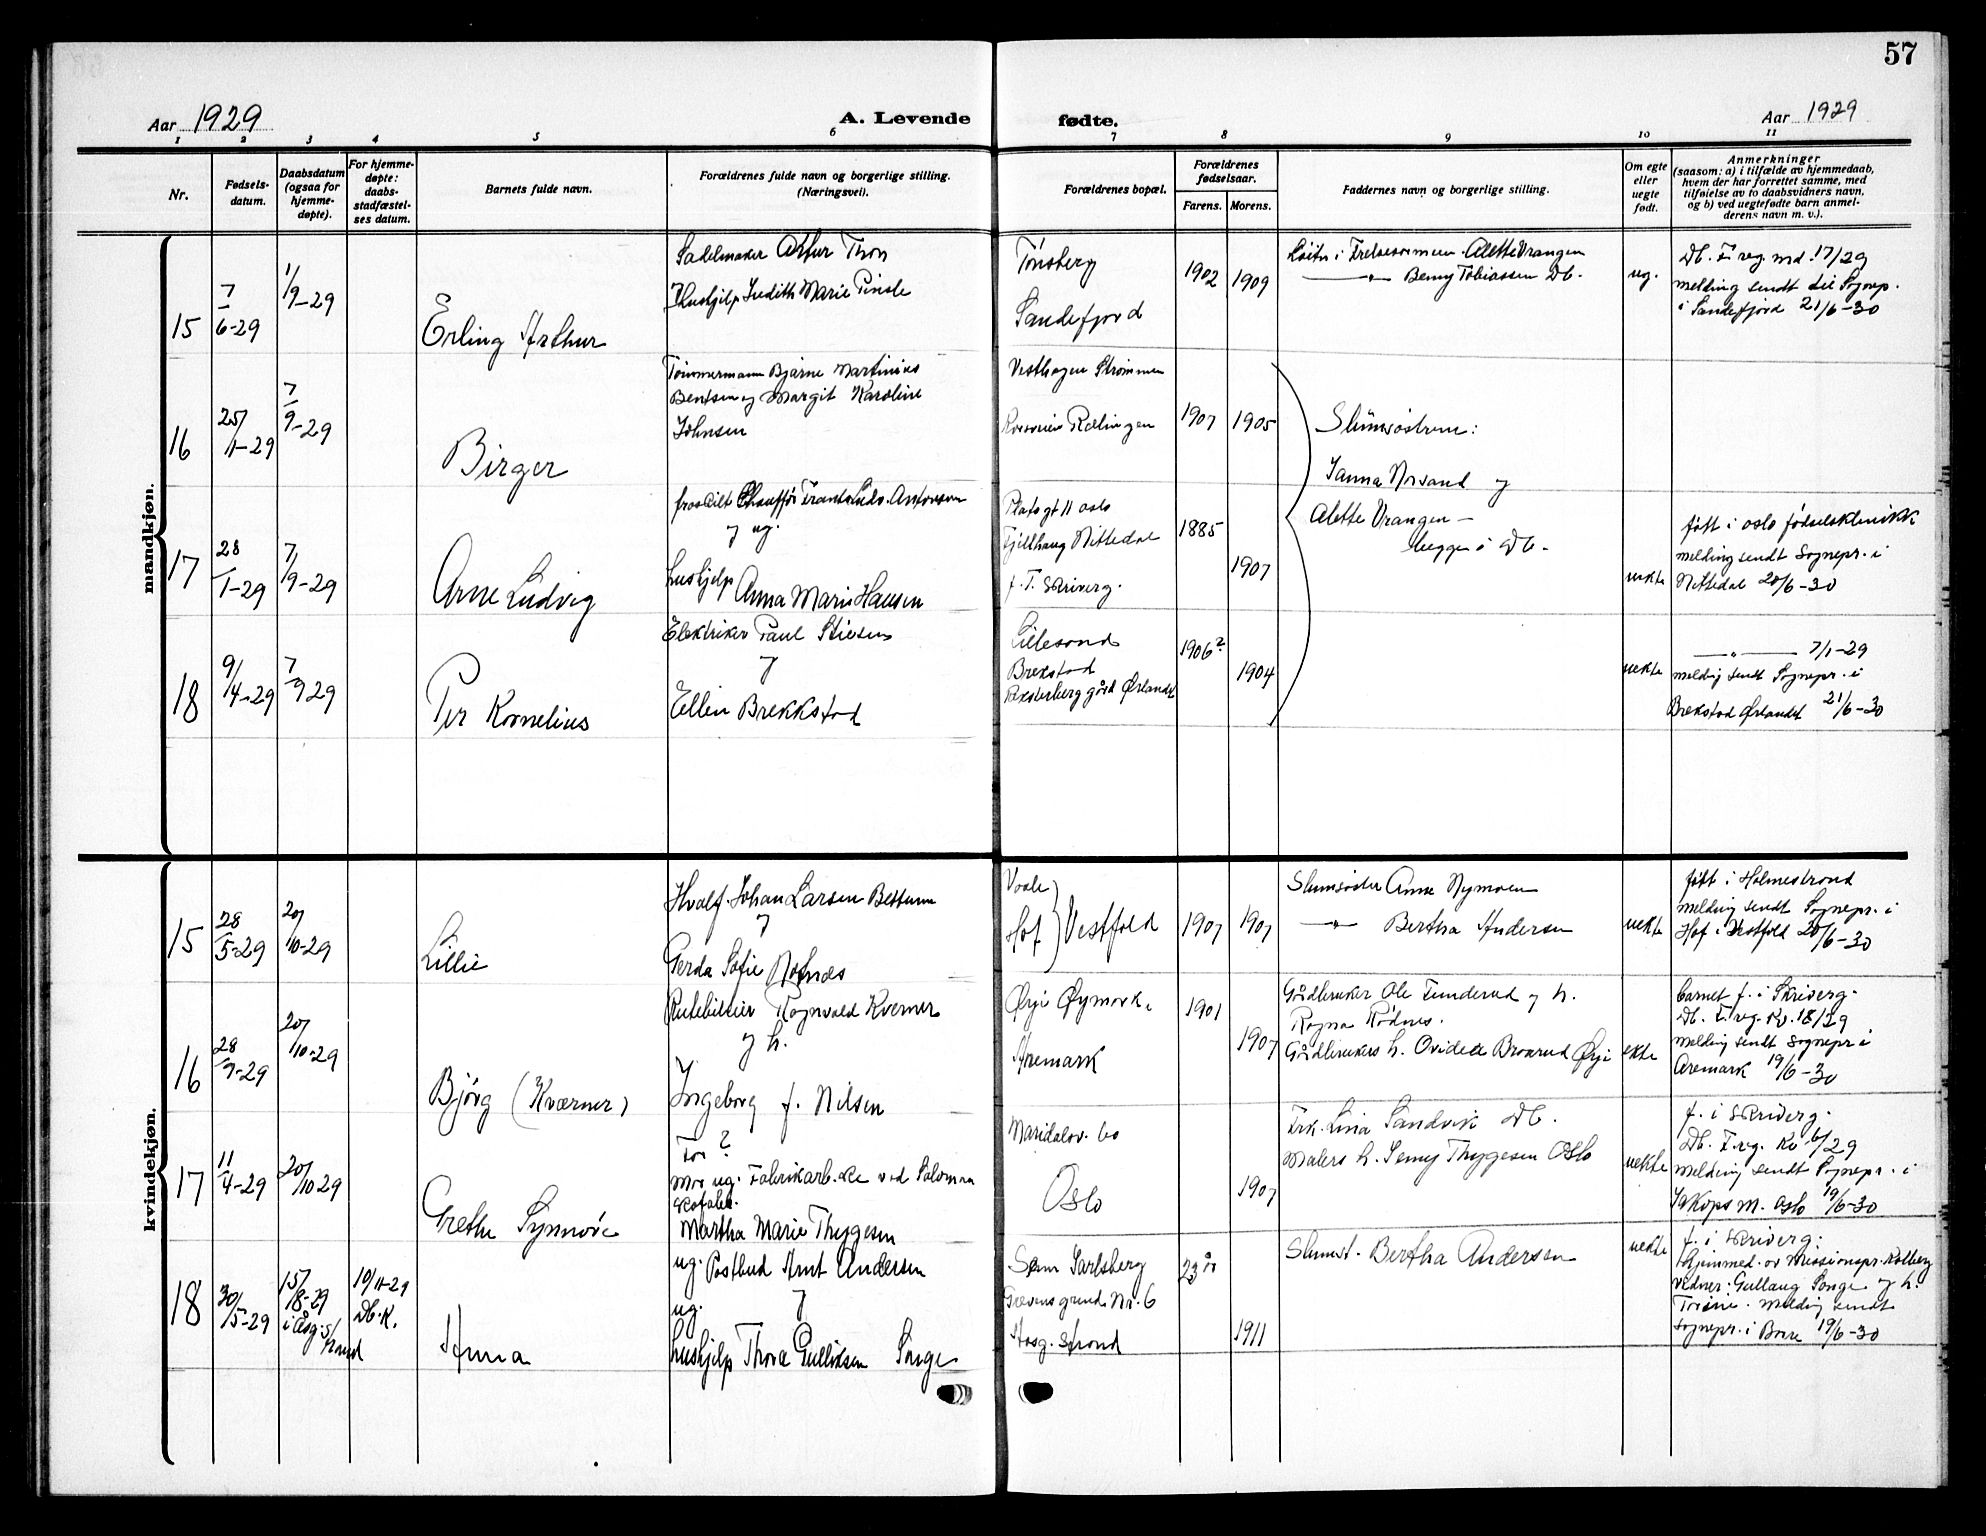 57
Aar 1929
A. Levende
fødte.
Aar 1929
1 2 3 4 5 6 7 8 9 10 11
Nr.
Fødsels-
datum.
Daabsdatum
(ogsaa for
hjemme-
døpte).
For hjemme-
døpte:
daabs-
stadfæstel-
ses datum.
Barnets fulde navn.
Forældrenes fulde navn og borgerlige stilling.
(Næringsvei).
Forældrenes bopæl.
Forældrenes
fødselsaar.
Farens. Morens.
Faddernes navn og borgerlige stilling.
Om egte
eller
uegte
født.
Anmerkninger
(saasom: a) i tilfælde av hjemmedaab,
hvem der har forrettet samme, med
tilføielse av to daabsvidners navn,
og b) ved uegtefødte barn anmel-
derens navn m. v.).
mandkjøn.
15
7/6-29
1/9-29
Erling Arthur
Sadelmaker Artur Thon
Hushjelp Judith Marie
Tönsberg
Sandefjord
1902
1909
Alette Vrangen
—"— Benny Tobiassen Db.
ug.
Db. F. reg. md. 17/29
melding sendt til Sognep.
i Sandefjord 21/6-30
16
25/11-29
7/9-29
Birger
Tömmermann Bjarne Martinius
Bentsen og Margit Karoline
Johnsen
Vesthagen Strömmen
Rælingen
1907
1905
Slumsöstrene:
Janna og
Alette Vrangen —
begge i Db.
17
28/1-29
7/9-29
Arne Ludvig
fraskilt Chauffør Frants Ludv. Antonsen
og ug.
hushjelp Anna Marie Hansen
Platogt 11 oslo
Fjellhaug Nittedal
f. T. Skriverg.
1885
1907
uekte
født i oslo fødselsklinikk
melding sendt Sognepr. i
Nittedal 20/6-30
18
9/4-29
7/9 29
Per Kornelius
Elektriker Paul
og
Ellen Brekkstad
Lillesand
Brekstad
gård Ørlandet
1906?
1904
uekte
—"— 7/1-29
melding sendt Sognepr. i
Brekstad Ørlandet 21/6-30
kvindekjøn.
15
28/5-29
20/10-29
Lillie
Hvalf. Johan Larsen Bettum
og
Gerda Sofie
Vaale
Hof } Vestfold
1907
1907
Slumsöster Anne Nymoen
—"— Bertha Andersen
uekte
født i Holmestrand
melding sendt Sognepr. i
Hof i Vestfold 20/6-30
16
28/7-29
20/10-29
Bjørg (Kværner)
Rutebileier Ragnvald Kverner
og h.
Ingeborg f. Nilsen
Ørje Øymark.
Aremark
1901
1907
Gårdbruker Ole Tunderud og h.
Ragna Rödnes.
Gårdbrukers h. Ovidea Ørje
ekte
barnet f. i Skriverg.
Db. F. reg. Kv. 18/29
melding sendt Sognepr i
Aremark 19/6-30
17
11/4-29
20/10 29
Grethe Synnöve
Far ?
Mor ug. Fabrikarb.ske ved Salomon
Skofabr.
Martha Marie Thygesen
Maridalsv. 60
Oslo
1907
Frk. Lina Sandvik Db.
Malers h. Jenny Thygesen Oslo
uekte
f. i Skriverg.
Db. F. reg. Kv 6/29
melding sendt Sognepr. i
Jakops m. oslo 19/6-30
18
30/5-29
15/8-29
i Åsg.s/
trand
10/11-29
Db. K.
Anna
ug. Postbud Arnt Andersen
og
ug.
hushjelp Thora Gullidsen Songe
Sem Jarlsberg
Grevensgrund Nr. 6
Aasg. strand
23 år
1911
Slumst. Bertha Andersen
uekte
f. i Skriverg:
Hjemmed. av Missionspr. Kolberg
vidner: Gullaug Songe og h.
melding sendt
Sognepr. i Borre 19/6-30